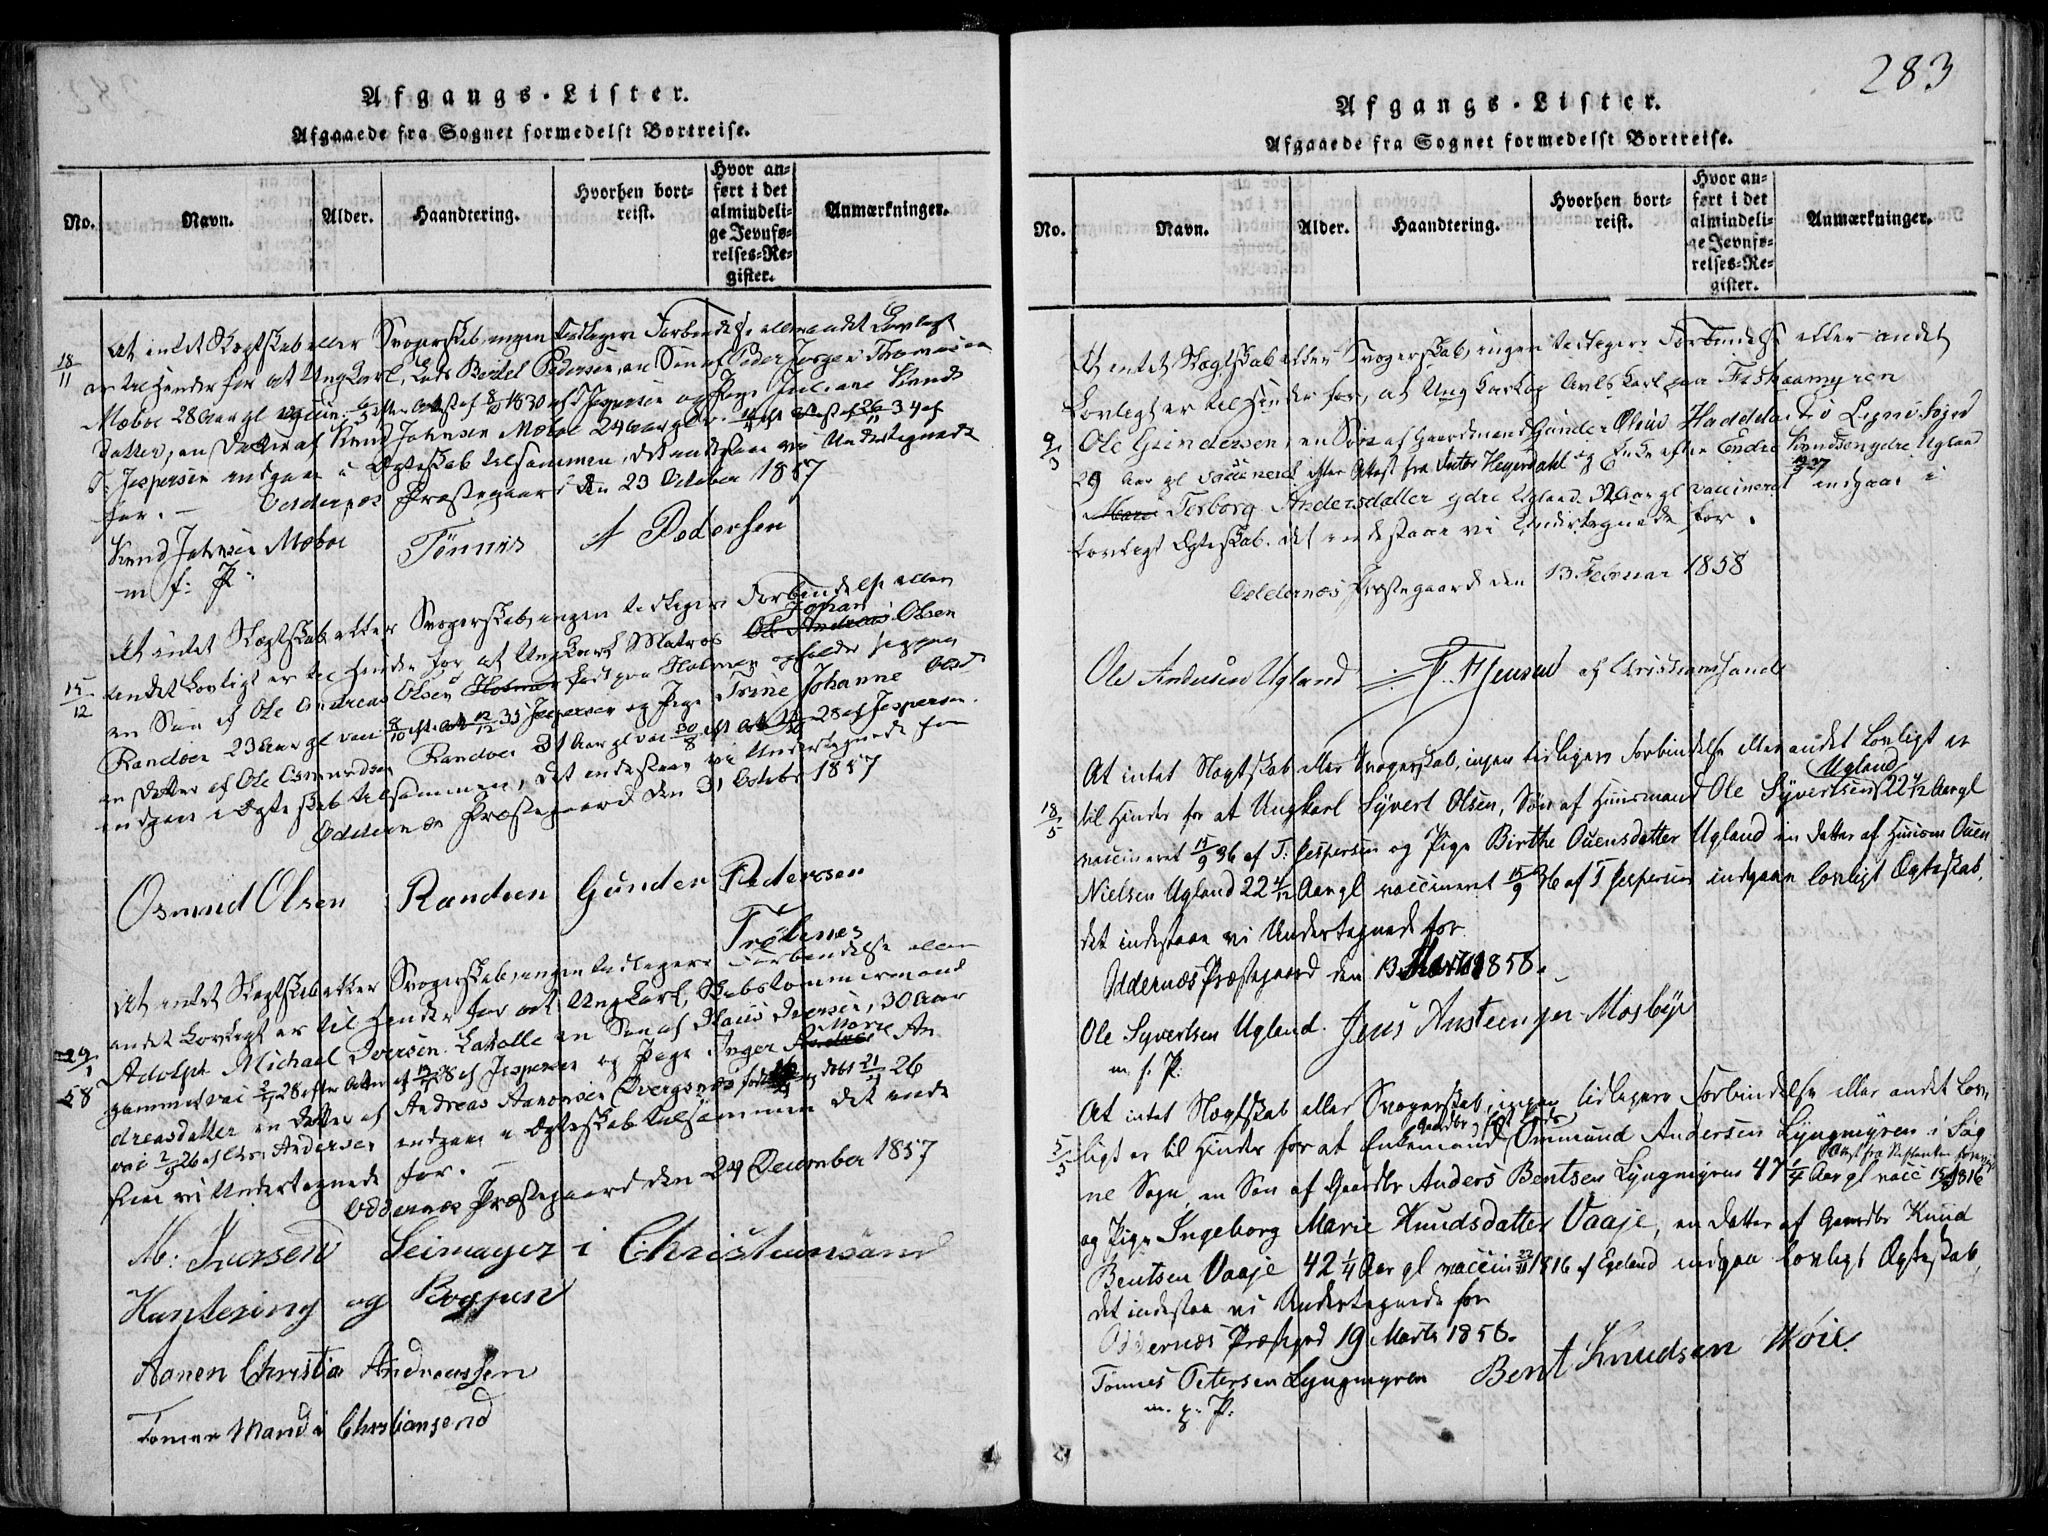 Afgangs-Lister.
Afgaaede fra Sognet formedelst Bortreise.
No.
Navn.
Alder.
Haandtering.
Hvorhen bort-
reist.
Hvor an-
ført i det
almindeli-
ge Jevnfø-
relses-Re-
gister.
Anmærkninger.
18/11
At intet Slægtskab eller Svogerskab, ingen tidligere Forbindelse eller andet Lovligt
er til Hinder for at Ungkarl, Lods Bertel Pedersen, en Søn af Peder Jørgen Thomesen
Mæboe 28 Aar gl vaccin. efter Attest af 8/10 1830 af Jespersen og Pige Juliane Knuds
datter, en Datter af Knud Johnsen Mæboe 24 Aar gl 26/11 34 af
T: Jespersen indgaar i Ægteskab tilsammen, det indestaar vi Undertegnede
for. – Oddernæs Præstegaard den 23 October 1857
Knud Johnsen Mæboe Tønnis A Pedersen
m f: P:
15/12
At intet Slægtskab eller Svogerskab, ingen tidligere Forbindelse eller
andet Lovligt er til Hinder for at Ungkarl Matros Ole Andreas Johan Olsen
en Søn af Ole Andreas Olsen Holmen født paa Holmen
Randøen 23 Aar gl vacc 8/10 efter Att 12/12 35 Jespersen og Pige Trine Johanne Olsd
en Datter af Ole Osmundsen Randøen 31 Aar gl vac 30/8 28 af Jespersen.
indgaa i Ægteskab tilsammen, det indestaar vi Undertegnede for
Oddernæs Præstegaard den 31 Octobr 1857
Osmud Olsen Randøen Gunder Pedersen
Trølsnes
29/1 58
At intet Slægtskab eller Svogerskab, ingen tidligere Forbindelse eller
andet Lovligt er til Hinder for at Ungkarl, Skibstømmermand
Adolph Michael Iversen Laholle en Søn af Iversen, 30 Aar
gammel vac 28 efter Attest af 28 af Jespersen og Pige Inger Andrea Marie An
dreasdatter en Datter af Andreas Aanonsen Dvergsnæs født og døbt 21/ 26
vac 26 af Chr. Andersen indgaa i Ægteskab tilsammen det inde
staar vi Undertegnede for. –
Oddernæs Præstegaard den 24 December 1857
M: Iversen Seimager i Christiansand
Hantering og
Aanen Christia Andreassen
Tømer Mand i Christiansend
283
Afgangs-Lister.
Afgaaede fra Sognet formedelst Bortreise.
No.
Navn.
Alder.
Haandtering.
Hvorhen bort-
reist.
Hvor an-
ført i det
almindeli-
ge Jevnfø-
relses-Re-
gister.
Anmærkninger.
9/3
At intet Slægtskab eller Svogerskab, ingen tidligere Forbindelse eller andet
Lovligt er til Hinder for, at Ungkarl og Avlskarl paa Fiskaamyren
Ole Gundersen, en Søn af Gaardmand Gunder Olsen Haddeland i Sogn
29 Aar gl vaccineret efter Attest fra Doctor Heyerdahl og Enke efter Endre Knudsen ydre Ugland
Maren Torborg Andersdatter ydre Ugland 32 Aar gl vaccineret 27 indgaar i
Lovligt Ægteskab. det indestaar vi Undertegnede for.
Oddernæs Præstegaard den 13 Februar 1858
Ole Andersen Ugland F. H Jensen af Christianssand
18/5
At intet Slægtskab eller Svogerskab, ingen tidligere Forbindelse eller andet Lovligt er
til Hinder for at Ungkarl Syvert Olsen, Søn af Huusmand Ole Syvertsen Ugland 22 4/12 Aar gl
vaccineret 15/9 36 af T: Jespersen og Pige Birthe Ouensdatter Ugland en Datter af Huusm Ouen
Nielsen Ugland 22 4/12 Aar gl vaccineret 15/9 36 af T Jespersen indgaar lovligt Ægteskab,
det indestaar vi Undertegnede for
Oddernæs Præstegaard den 13 Marts 1858.
Ole Syvertsen Ugland. Jens Austeinsen Mosbye
m. f. P:
5/5
At intet Slægtskab eller Svogerskab, ingen tidligere Forbindelse eller andet lov-
ligt er til Hinder for at Enkemand Gaardbr Ommund Andersen Lyngmyren i Søg
ne Sogn, en Søn af Gaardbr Anders Bentsen Lyngmyren 47 1/4 Aar gl vacc 1816
og Pige Ingeborg Marie Knudsdatter Vaaje, en Datter af Gaardbr Knud
Bentsen Vaaje 42 1/4 Aar gl vaccin 1816 af Egeland indgaa lovligt Ægteskab,
det indestaa vi Undertegnede for
Oddernæs Præstgrd 19 Marts 1858.
Tønnes Petersen Lyngmyren Bent Knudsen Høie.
m. f. P: